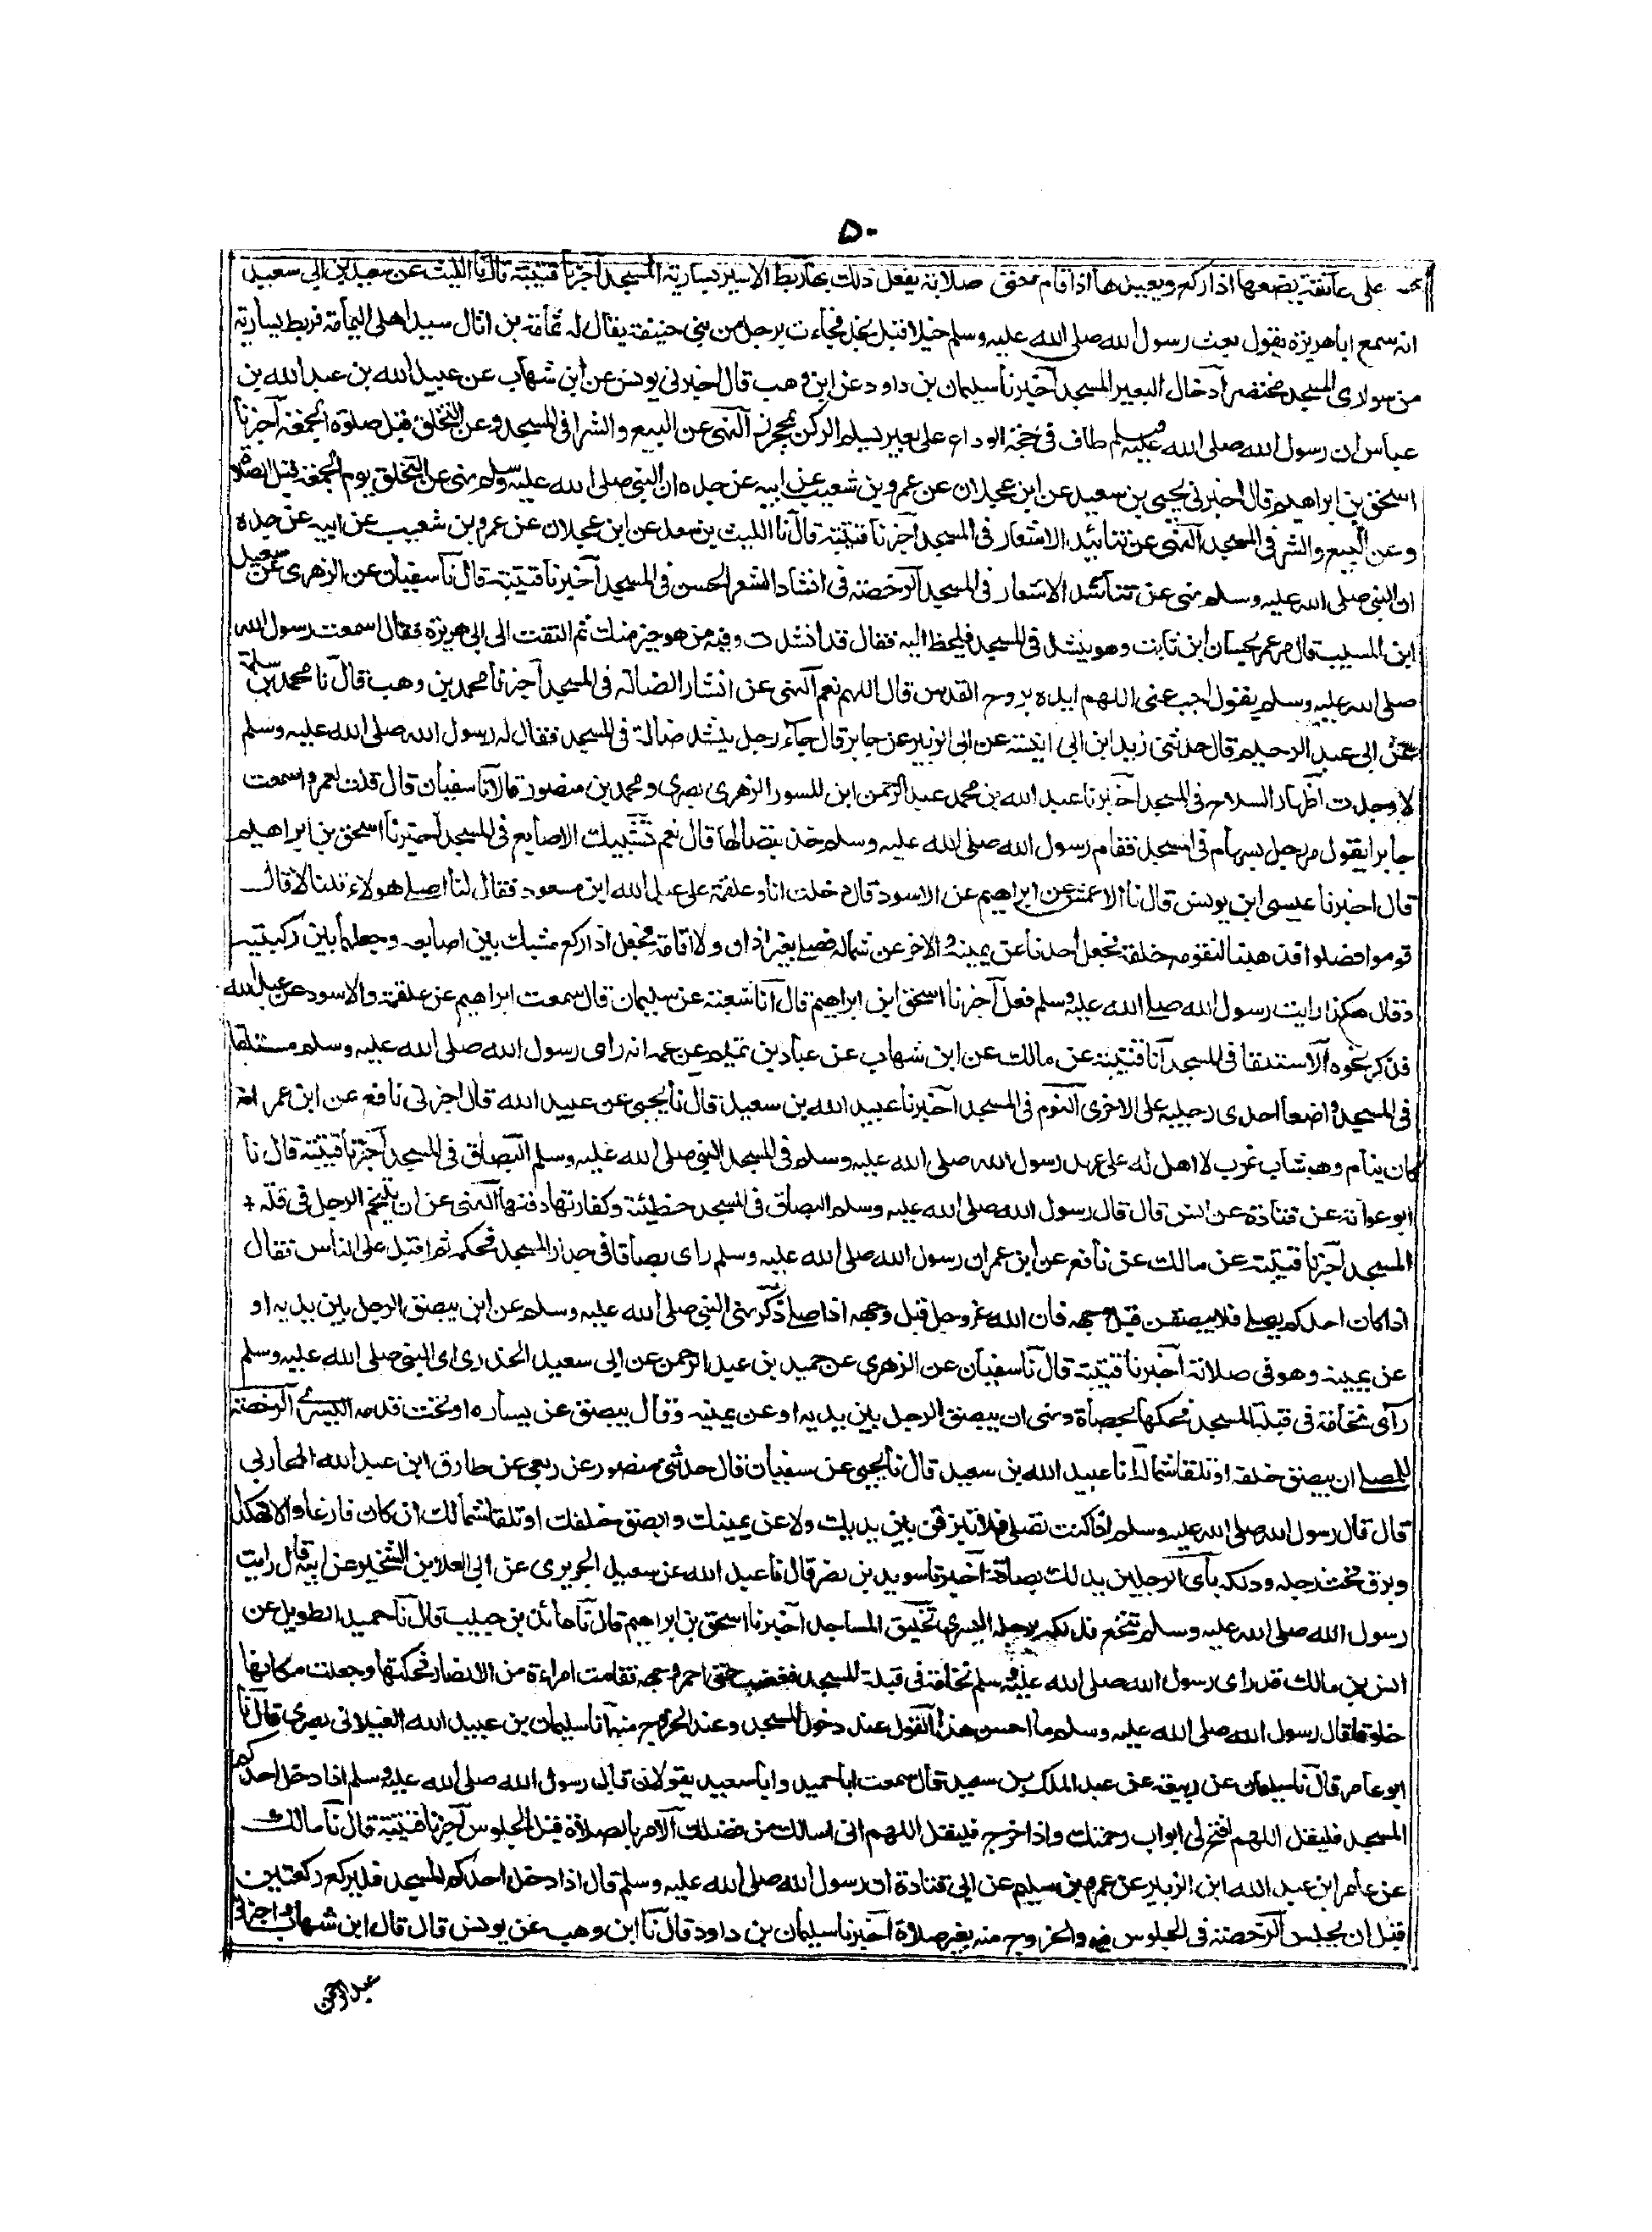 ۵۰
على عاتقه يضعها اذا ركع ويعيدها اذا قام حتى قضى صلاته يفعل ذلك بها ربط الاسير بسارية المسجد اخبرنا قتيبة قال نا الليث عن سعيد بن ابي سعيد
انه سمع ابا هريرة يقول بعث رسول الله صلى الله عليه وسلم خيلا قبل نجد فجاءت برجل من بني حنيفة يقال له ثمامة بن اثال سيد اهل اليمامة فربط بسارية
من سوارى المسجد مختصر ادخال البعير المسجد اخبرنا سليمان بن داود عن ابن وهب قال اخبرني يونس عن ابن شهاب عن عبيد الله بن عبد الله بن
عباس ان رسول الله صلى الله عليه وسلم طاف في حجة الوداع على بعير يستلم الركن بمحجن النهى عن البيع والشرا في المسجد وعن التحلق قبل صلوة الجمعة اخبرنا
اسحق بن ابراهيم قال اخبرني يحيى بن سعيد عن ابن عجلان عن عمرو بن شعيب عن ابيه عن جده ان النبي صلى الله عليه وسلم نهى عن التحلق يوم الجمعة قبل الصلا
وعن البيع والشر في المسجد النهى عن تناشد الاشعار في المسجد اخبرنا قتيبة قال نا الليث بن سعد عن ابن عجلان عن عمرو بن شعيب عن ابيه عن جده
ان النبي صلى الله عليه وسلم نهى عن تناشد الاشعار في المسجد الرخصة في انشاد الشعر الحسن في المسجد اخبرنا قتيبة قال نا سفيان عن الزهرى عن سعيد
ابن المسيب قال مر عمر بحسان ابن ثابت وهو ينشد في المسجد فلحظ اليه فقال قد انشدت وفيه من هو خير منك ثم التفت الى ابي هريرة فقال اسمعت رسول الله
صلى الله عليه وسلم يقول اجب عنى اللهم ايده بروح القدس قال اللهم نعم النهى عن انشار الضالة في المسجد اخبرنا محمد بن وهب قال نا محمد بن سلمة
عن ابى عبد الرحيم قال حدثنى زيد ابن ابى انيسة عن ابى الزبير عن جابر قال جاء رجل ينشد ضالة في المسجد فقال له رسول الله صلى الله عليه وسلم
لا وجدت اظهار السلاح في المسجد اخبرنا عبد الله بن محمد عبد الرحمن ابن المسور الزهرى بصرى ومحمد بن منصور قالا نا سفيان قال قلت لعمرو اسمعت
جابرا يقول مر رجل بسهام في المسجد فقام رسول الله صلى الله عليه وسلم خذ بنصالها قال نعم تشبيك الاصابع في المسجد اخبرنا اسحق بن ابراهيم
قال اخبرنا عيسى ابن يونس قال نا الاعمش عن ابراهيم عن الاسود قال دخلت انا وعلقمة على عبد الله ابن مسعود فقال لنا اصلى هولاء قلنا لا قال
قوموا فصلوا فذهبنا لنقوم خلفه فجعل احدنا عن يمينه والاخر عن شماله فصلى بغير اذان ولا اقامة فجعل اذا ركع شبك بين اصابعه وجعلها بين ركبتيه
وقال هكذا رايت رسول الله صلى الله عليه وسلم فعل اخبرنا اسحق ابن ابراهيم قال انا شعبة عن سليمان قال سمعت ابراهيم عن علقمة والاسود عن عبد الله
فذكر نحوه الاستلقا في المسجد انا قتيبة عن مالك عن ابن شهاب عن عباد بن تميم عن عمه انه راى رسول الله صلى الله عليه وسلم مستلقيا
في المسجد واضعا احدى رجليه على الاخرى النوم في المسجد اخبرنا عبيد الله بن سعيد قال نا يحيى عن عبيد الله قال اخبرني نافع عن ابن عمر انه
كان ينام وهو شاب عزب لا اهل له على عهد رسول الله صلى الله عليه وسلم في المسجد النبي صلى الله عليه وسلم البصاق في المسجد اخبرنا قتيبة قال نا
ابو عوانة عن قتادة عن انس قال قال رسول الله صلى الله عليه وسلم البصاق في المسجد خطيئة وكفارتها دفنها النهى عن ان يتنخم الرجل في قبلة
المسجد اخبرنا قتيبة عن مالك عن نافع عن ابن عمر ان رسول الله صلى الله عليه وسلم راى بصاقا في جدار المسجد فحكه ثم اقبل على الناس فقال
اذا كان احدكم يصلى فلا يبصقن قبل وجهه فان الله عز وجل قبل وجهه اذا صلى ذكر نهى النبي صلى الله عليه وسلم عن ان يبصق الرجل بين يديه او
عن يمينه وهو في صلاته اخبرنا قتيبة قال نا سفيان عن الزهرى عن حميد بن عبد الرحمن عن ابى سعيد الخدرى اى النبي صلى الله عليه وسلم
رآى نخامة في قبلة المسجد فحكها بحصاة ونهى ان يبصق الرجل بين يديه او عن يمينه وقال يبصق عن يساره او تحت قدمه اليسرى الرخصة
للمصلى ان يبصق خلفه او تلقا شماله انا عبيد الله بن سعيد قال نا يحيى عن سفيان قال حدثنى منصور عن ربعى عن طارق ابن عبد الله المحاربى
قال قال رسول الله صلى الله عليه وسلم اذا كنت تصلى فلا تبزقن بين يديك ولا عن يمينك وابصق خلفك او تلقا شمالك ان كان فارغا والا فهكذا
وبزق تحت رجله ودلكه باى الرجلين يدلك بصاقه اخبرنا سويد بن نصر قال نا عبد الله عن سعيد الجريرى عن ابى العلا بن الشخير عن ابيه قال رايت
رسول الله صلى الله عليه وسلم تنخع فدلكه برجله اليسرى تخليق المساجد اخبرنا اسحق بن ابراهيم قال نا عائذ بن حبيب قال نا حميد الطويل عن
انس بن مالك قد راى رسول الله صلى الله عليه وسلم نخامة في قبلة المسجد فغضب حتى احمر وجهه فقامت امراءة من الانصار فحكتها وجعلت مكانها
خلوقا فقال رسول الله صلى الله عليه وسلم ما احسن هذا القول عند دخول المسجد وعند الخروج منه انا سليمان بن عبيد الله الغيلانى بصرى قال نا
ابو عامر قال نا سليمان عن ربيعة عن عبد الملك بن سعيد قال سمعت ابا حميد وابا سعيد يقولان قال رسول الله صلى الله عليه وسلم اذا دخل احدكم
المسجد فليقل اللهم افتح لى ابواب رحمتك واذا خرج فليقل اللهم انى اسالك من فضلك الامر بالصلاة قبل الجلوس اخبرنا قتيبة قال نا مالك
عن عامر ابن عبد الله ابن الزبير عن عمرو بن سليم عن ابى قتادة ان رسول الله صلى الله عليه وسلم قال اذا دخل احدكم المسجد فليركع ركعتين
قبل ان يجلس الرخصة في الجلوس فيه والخروج منه بغير صلاة اخبرنا سليمان بن داود قال نا ابن وهب عن يونس قال قال ابن شهاب واخبرنى
عبد الرحمن